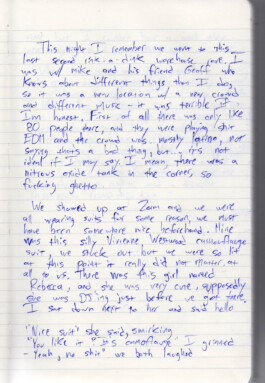 This night I remember we went to this
last second rink-a-dink warehouse rave. I
was w/ mike and his friend Geoff who
knows about different things than I do,
so it was a new location w/ a new crowd
and different music - it was terrible if
I'm honest, First of all there was only like
80 people there, and they were playing shit
EDM and the crowd was mostly latino, not
saying thats a bad thing, but it's not
ideal if I may say. I mean, there was a
nitrous oxide tank in the corner, so
fucking ghetto.
We showed up at 2am and we were
all wearing suits for some reason, we must
have been somewhere nice beforehand. Mine
was this silly Vivienne Westwood camouflauge
suit, we stuck out but we were so lit
at this point it really did not matter at
all to us. There was this girl named
Rebecca, and she was very cute, supposedly
she was DJ'ing just before we got there.
I sat down next to her and said hello
"Nice suit" she said, smirking
"You like it? It's camoflauge" I grinned
- Yeah, no shit" we both laughed